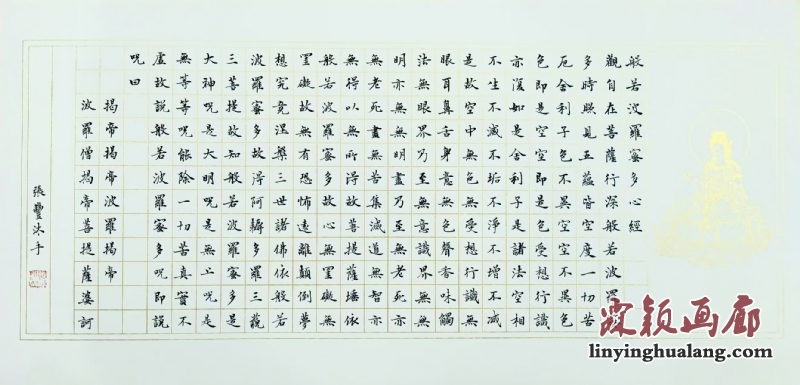 般若波羅蜜多心經
觀自在菩薩行深般若波羅
多時照見五蘊皆空度一切苦
厄舍利子色不異空空不異色
色即是空空即是色受想行識
亦復如是舍利子是諸法空相
不生不滅不垢不淨不增不減
是故空中無色無受想行識無
眼耳鼻舌身意無色聲香味觸
法無眼界乃至無意識界無無
明亦無無明盡乃至無老死亦
無老死盡無苦集滅道無智亦
無得以無所得故菩提薩埵依
般若波羅蜜多故心無罣礙無
罣礙故無有恐怖遠離顛倒夢
想究竟涅槃三世諸佛依般若
波羅蜜多故得阿耨多羅三藐
三菩提故知般若波羅蜜多是
大神呪是大明呪是無上呪是
無等等呪能除一切苦真實不
虛故說般若波羅蜜多呪即說
呪曰
揭帝揭帝波羅揭帝
波羅僧揭帝菩提薩婆訶
張豐沐手
霖颖画廊
linyinghualang.com